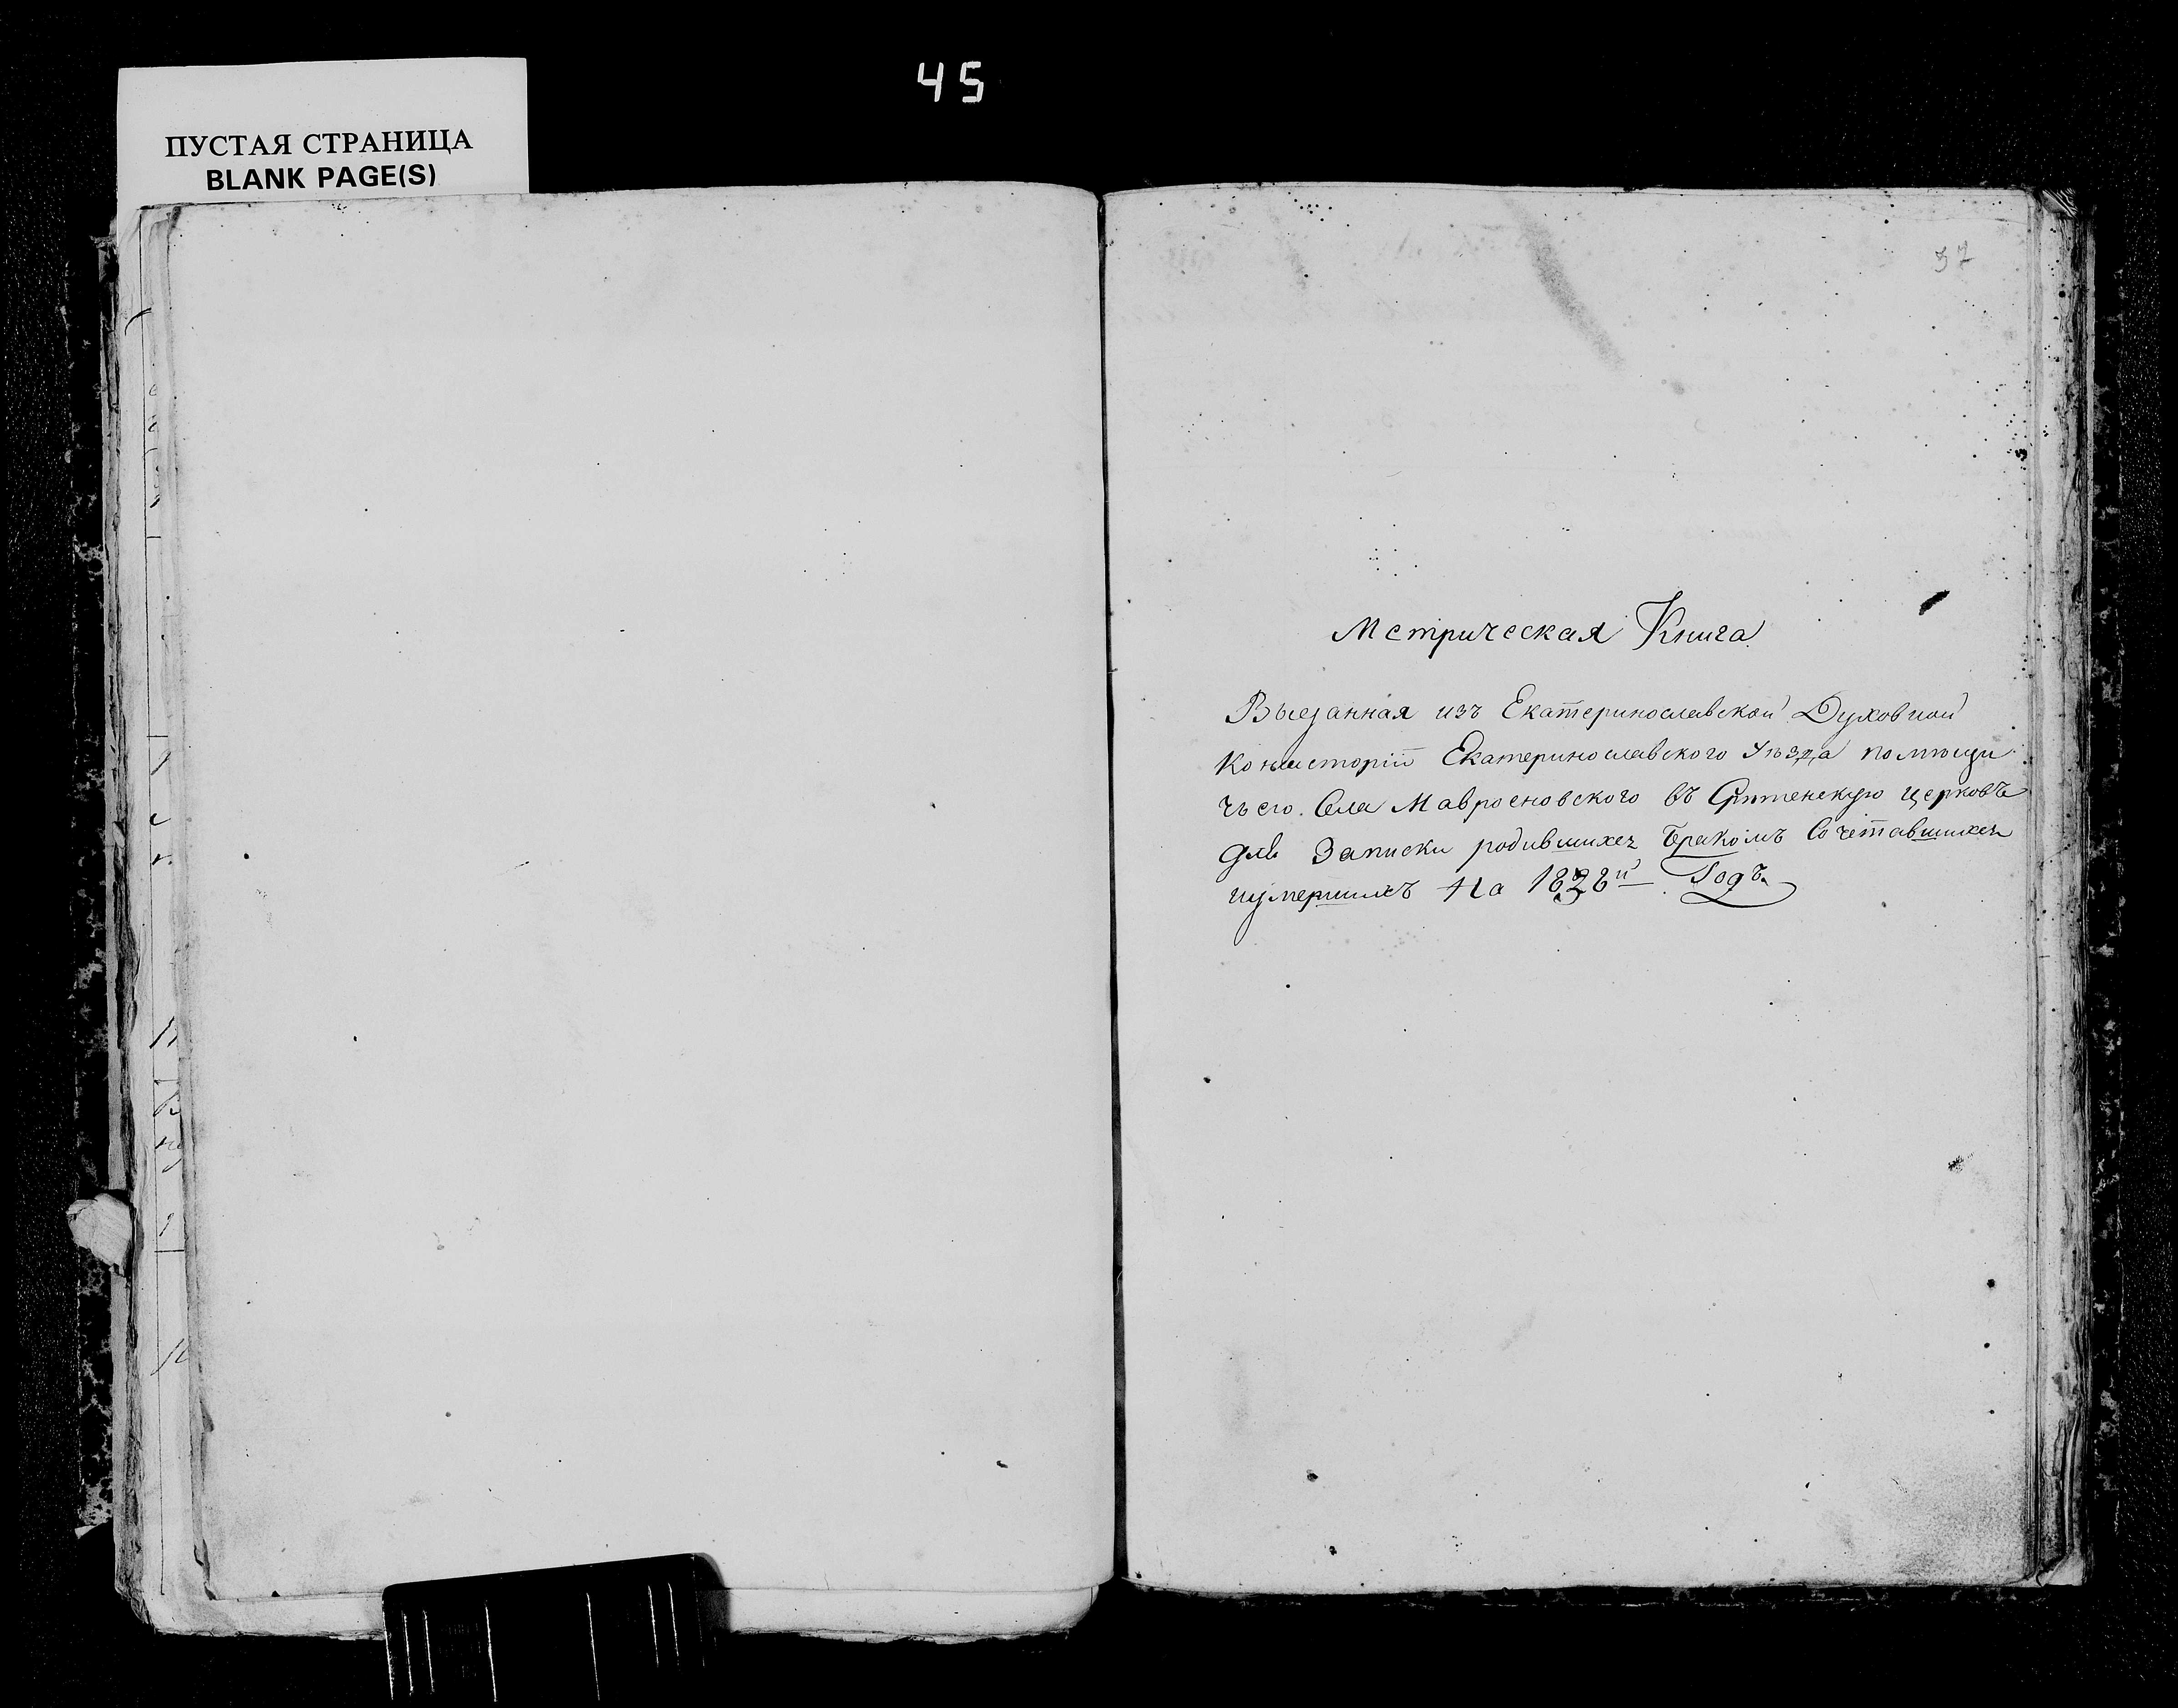 45
ПУСТАЯ СТРАНИЦА
BLANK PAGE(S)
37
Метрическая Книга
Выданная изъ Екатеринославской Духовной
Консисторіи Екатеринославского Уѣзда помѣщи
чьего Села Мавроеновского въ Срѣтенскую церковъ
для Записки родившихся Бракомъ Сочетавшихся
иумершихъ На 1828й Годъ